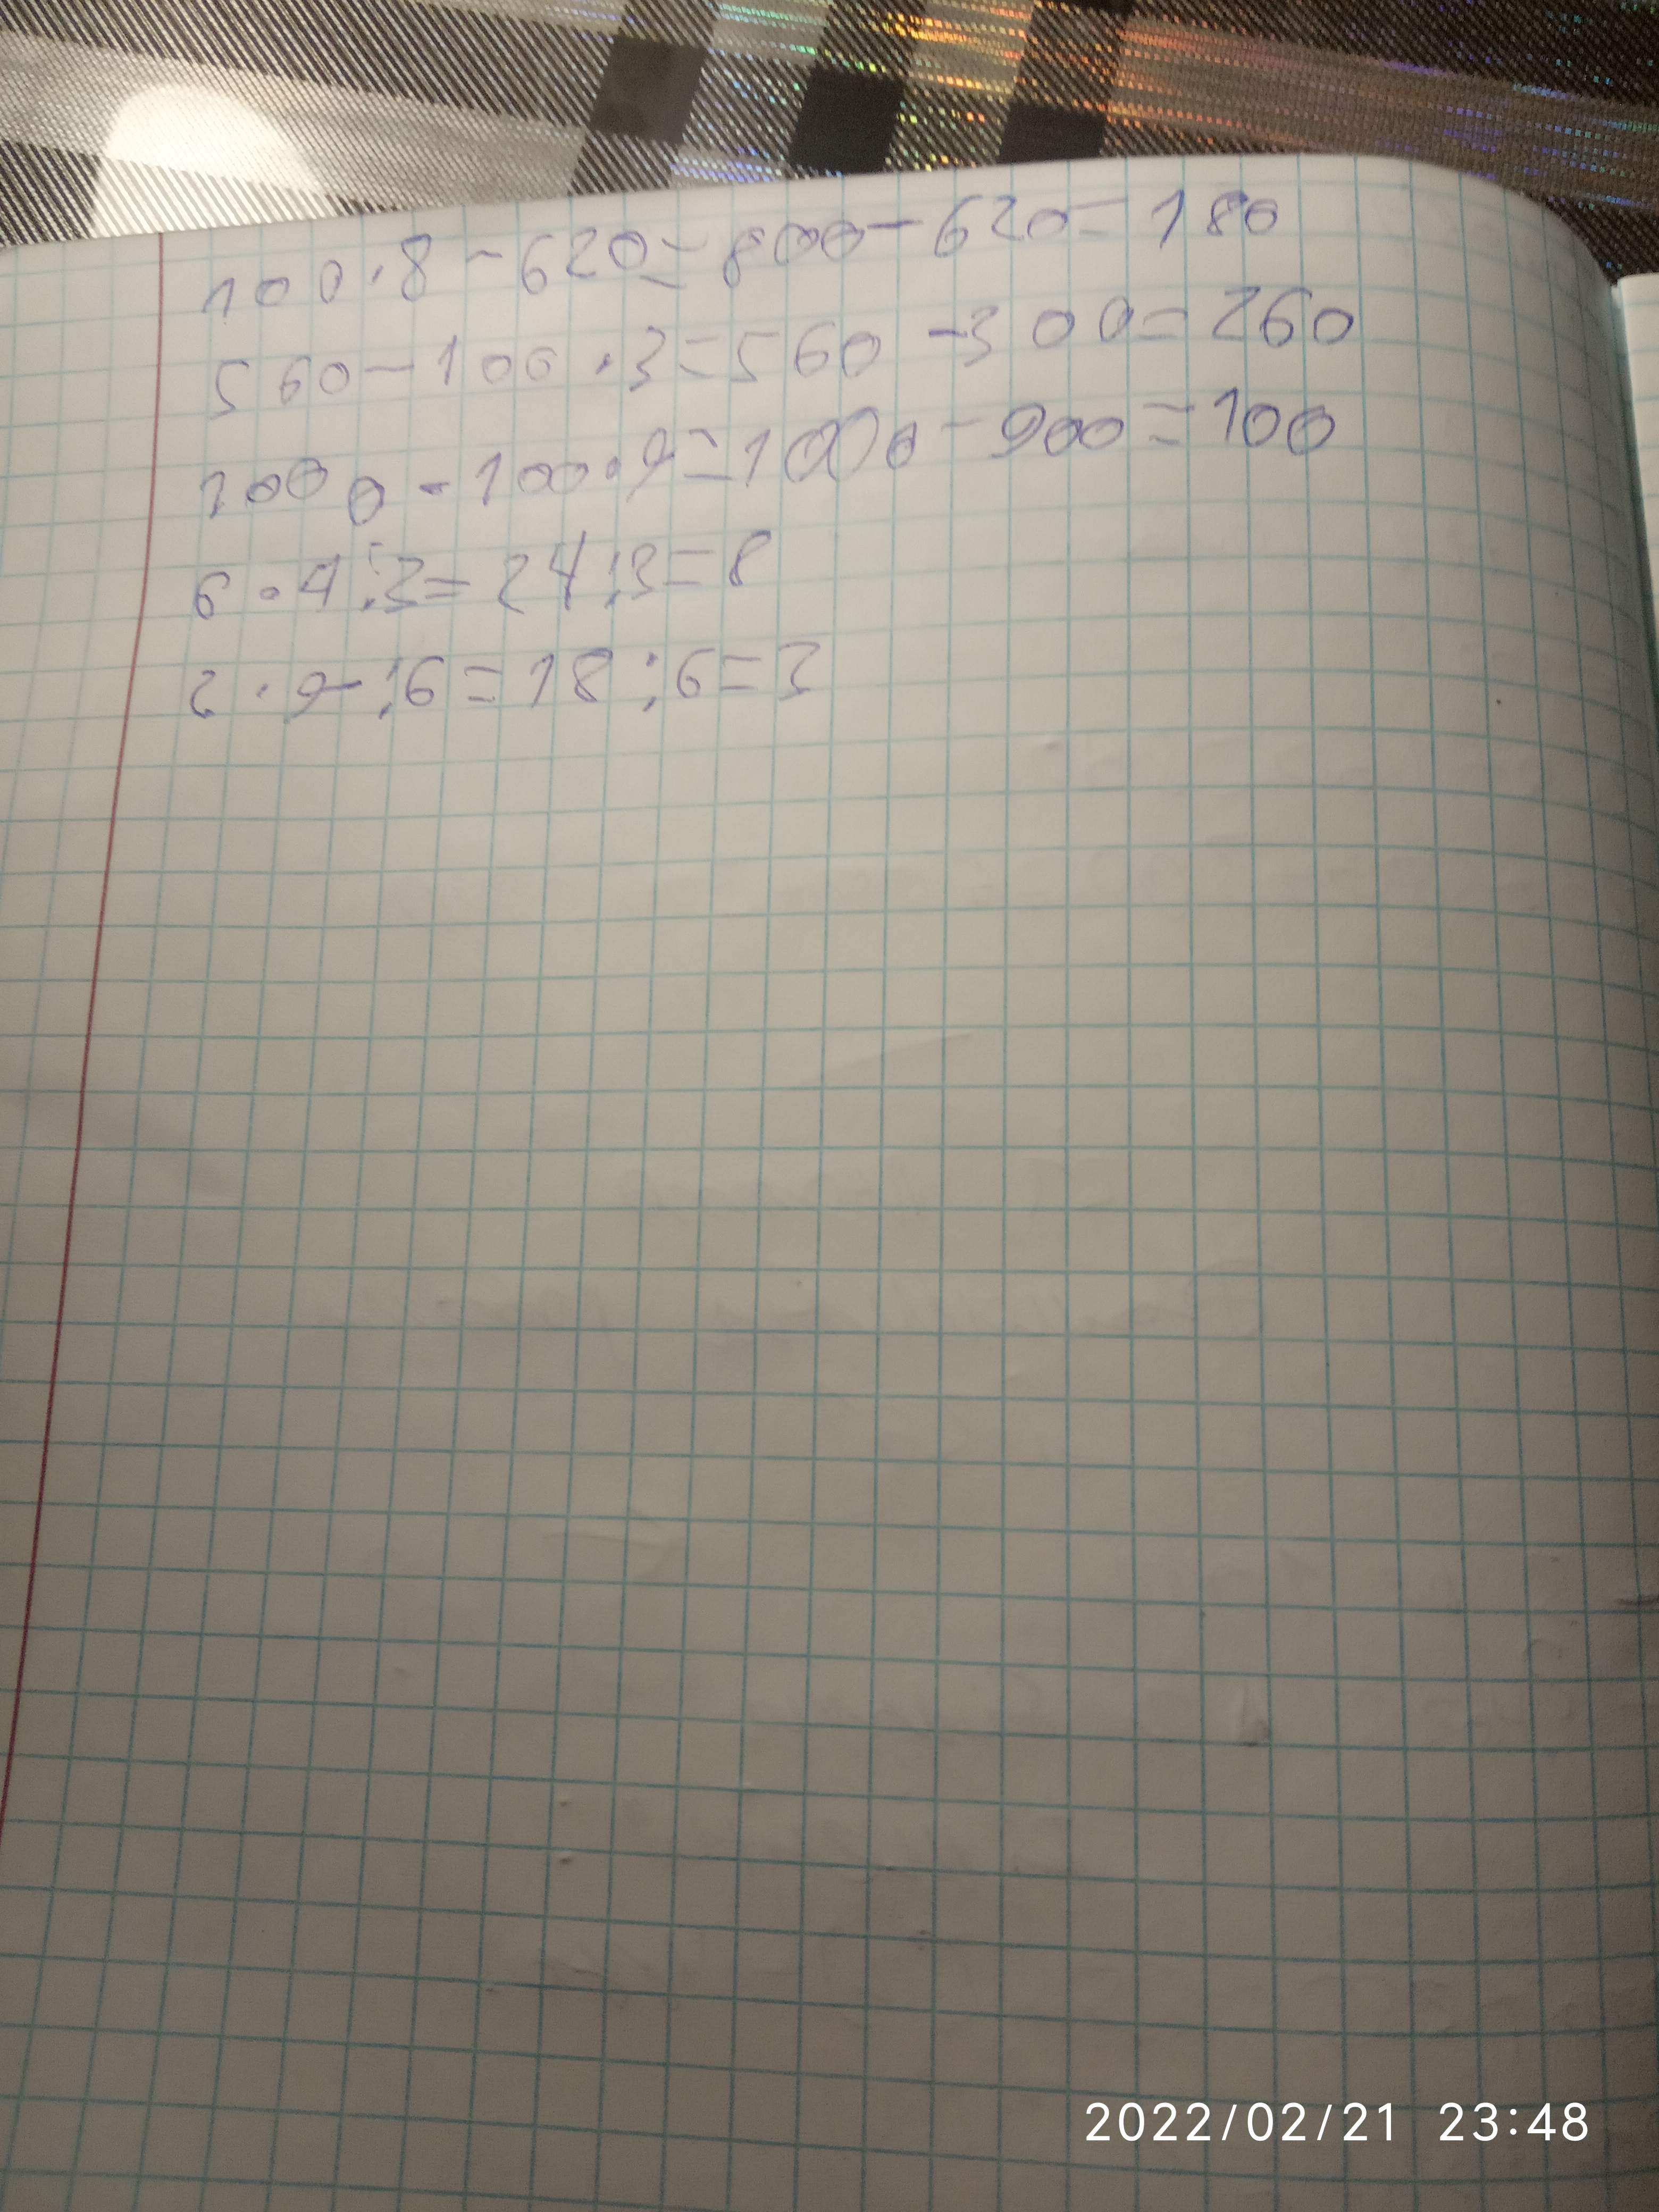 100·8-620=800-620=180
560-100·3=560-300=260
1000-100·9=1000-900=100
6·4:3=24:3=8
2·9:6=18:6=3
2022/02/21 23:48